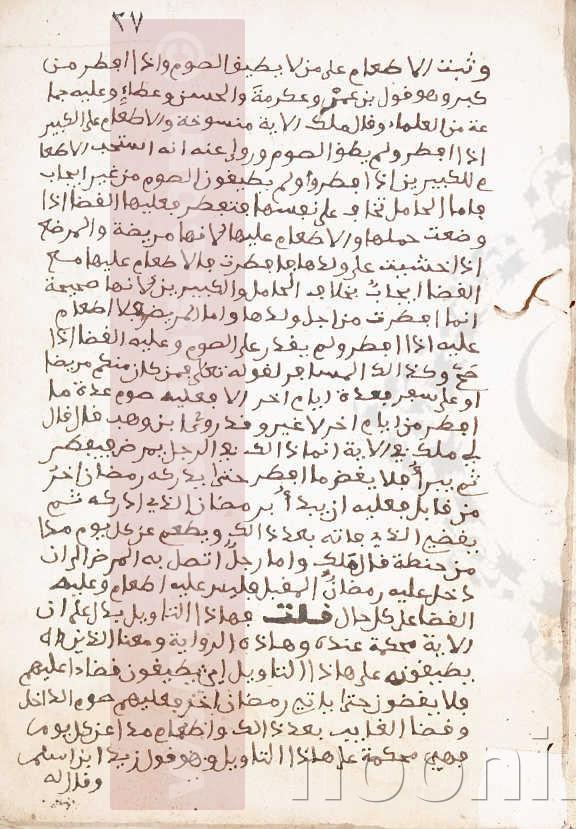 ٣٧
وثبت الاطعام على من لا يطيق الصوم واذا افطر من
كبر وهو قول بن عمر وعكرمة والحسن وعطاء وعليه جما
عة من العلماء وقال ملك الاية منسوخة ولا اطعام على الكبير
اذا افطر ولم يطق الصوم وروى عنه انه استحب الاطعا
م للكبيرين اذا افطروا ولم يطيقون الصوم من غير ايجاب
فاما الحامل تخاف على نفسها فتفطر فعليها القضا اذا
وضعت حملها ولا اطعام عليها لانها مريضة والمرضع
اذا خشيت على ولدها فافطرت فالاطعام عليها مع
القضا ايجاب بخلاف الحامل والكبيرين لانها صحيحة
انما افطرت من اجل ولدها واما المريض فلا اطعام
عليه اذا افطر ولم يقدر على الصوم وعليه القضا اذا
صح وكذالك المسافر لقوله تعلى فمن كان منكم مريضا
او على سفر فعدة ايام اخر الا فعليه صوم عدة ما
افطر من ايام اخر لا غير وقد روى ابن وهب قال قال
لي ملك في الاية انما ذالك في الرجل يمرض فيفطر
ثم يبرأ فلا يقض ما افطر حتى يدركه رمضان اخر
من قابل فعليه ان يبدأ برمضان الذي ادركه ثم
يقضي الذي فاته بعد ذالك ويطعم عن كل يوم مدا
من حنطة قال ملك واما رجل اتصل به المرض الى ان
دخل عليه رمضان المقبل فليس عليه اطعام وعليه
القضا على كل حال قلت فهاذا التاويل يدل على ان
الاية محكمة عنده وهاذه الرواية ومعنا الذين
يطيقونه على هاذا التاويل اي يطيقون قضا ما عليهم
فلا يقضو حتى ياتي رمضان اخر فعليهم صوم الداخل
وقضا الفايت بعد ذالك واطعام مد عن كل يوم
فهي محكمة على هاذا التاويل وهو قول زيد ابن اسلم
وقال له
nooni